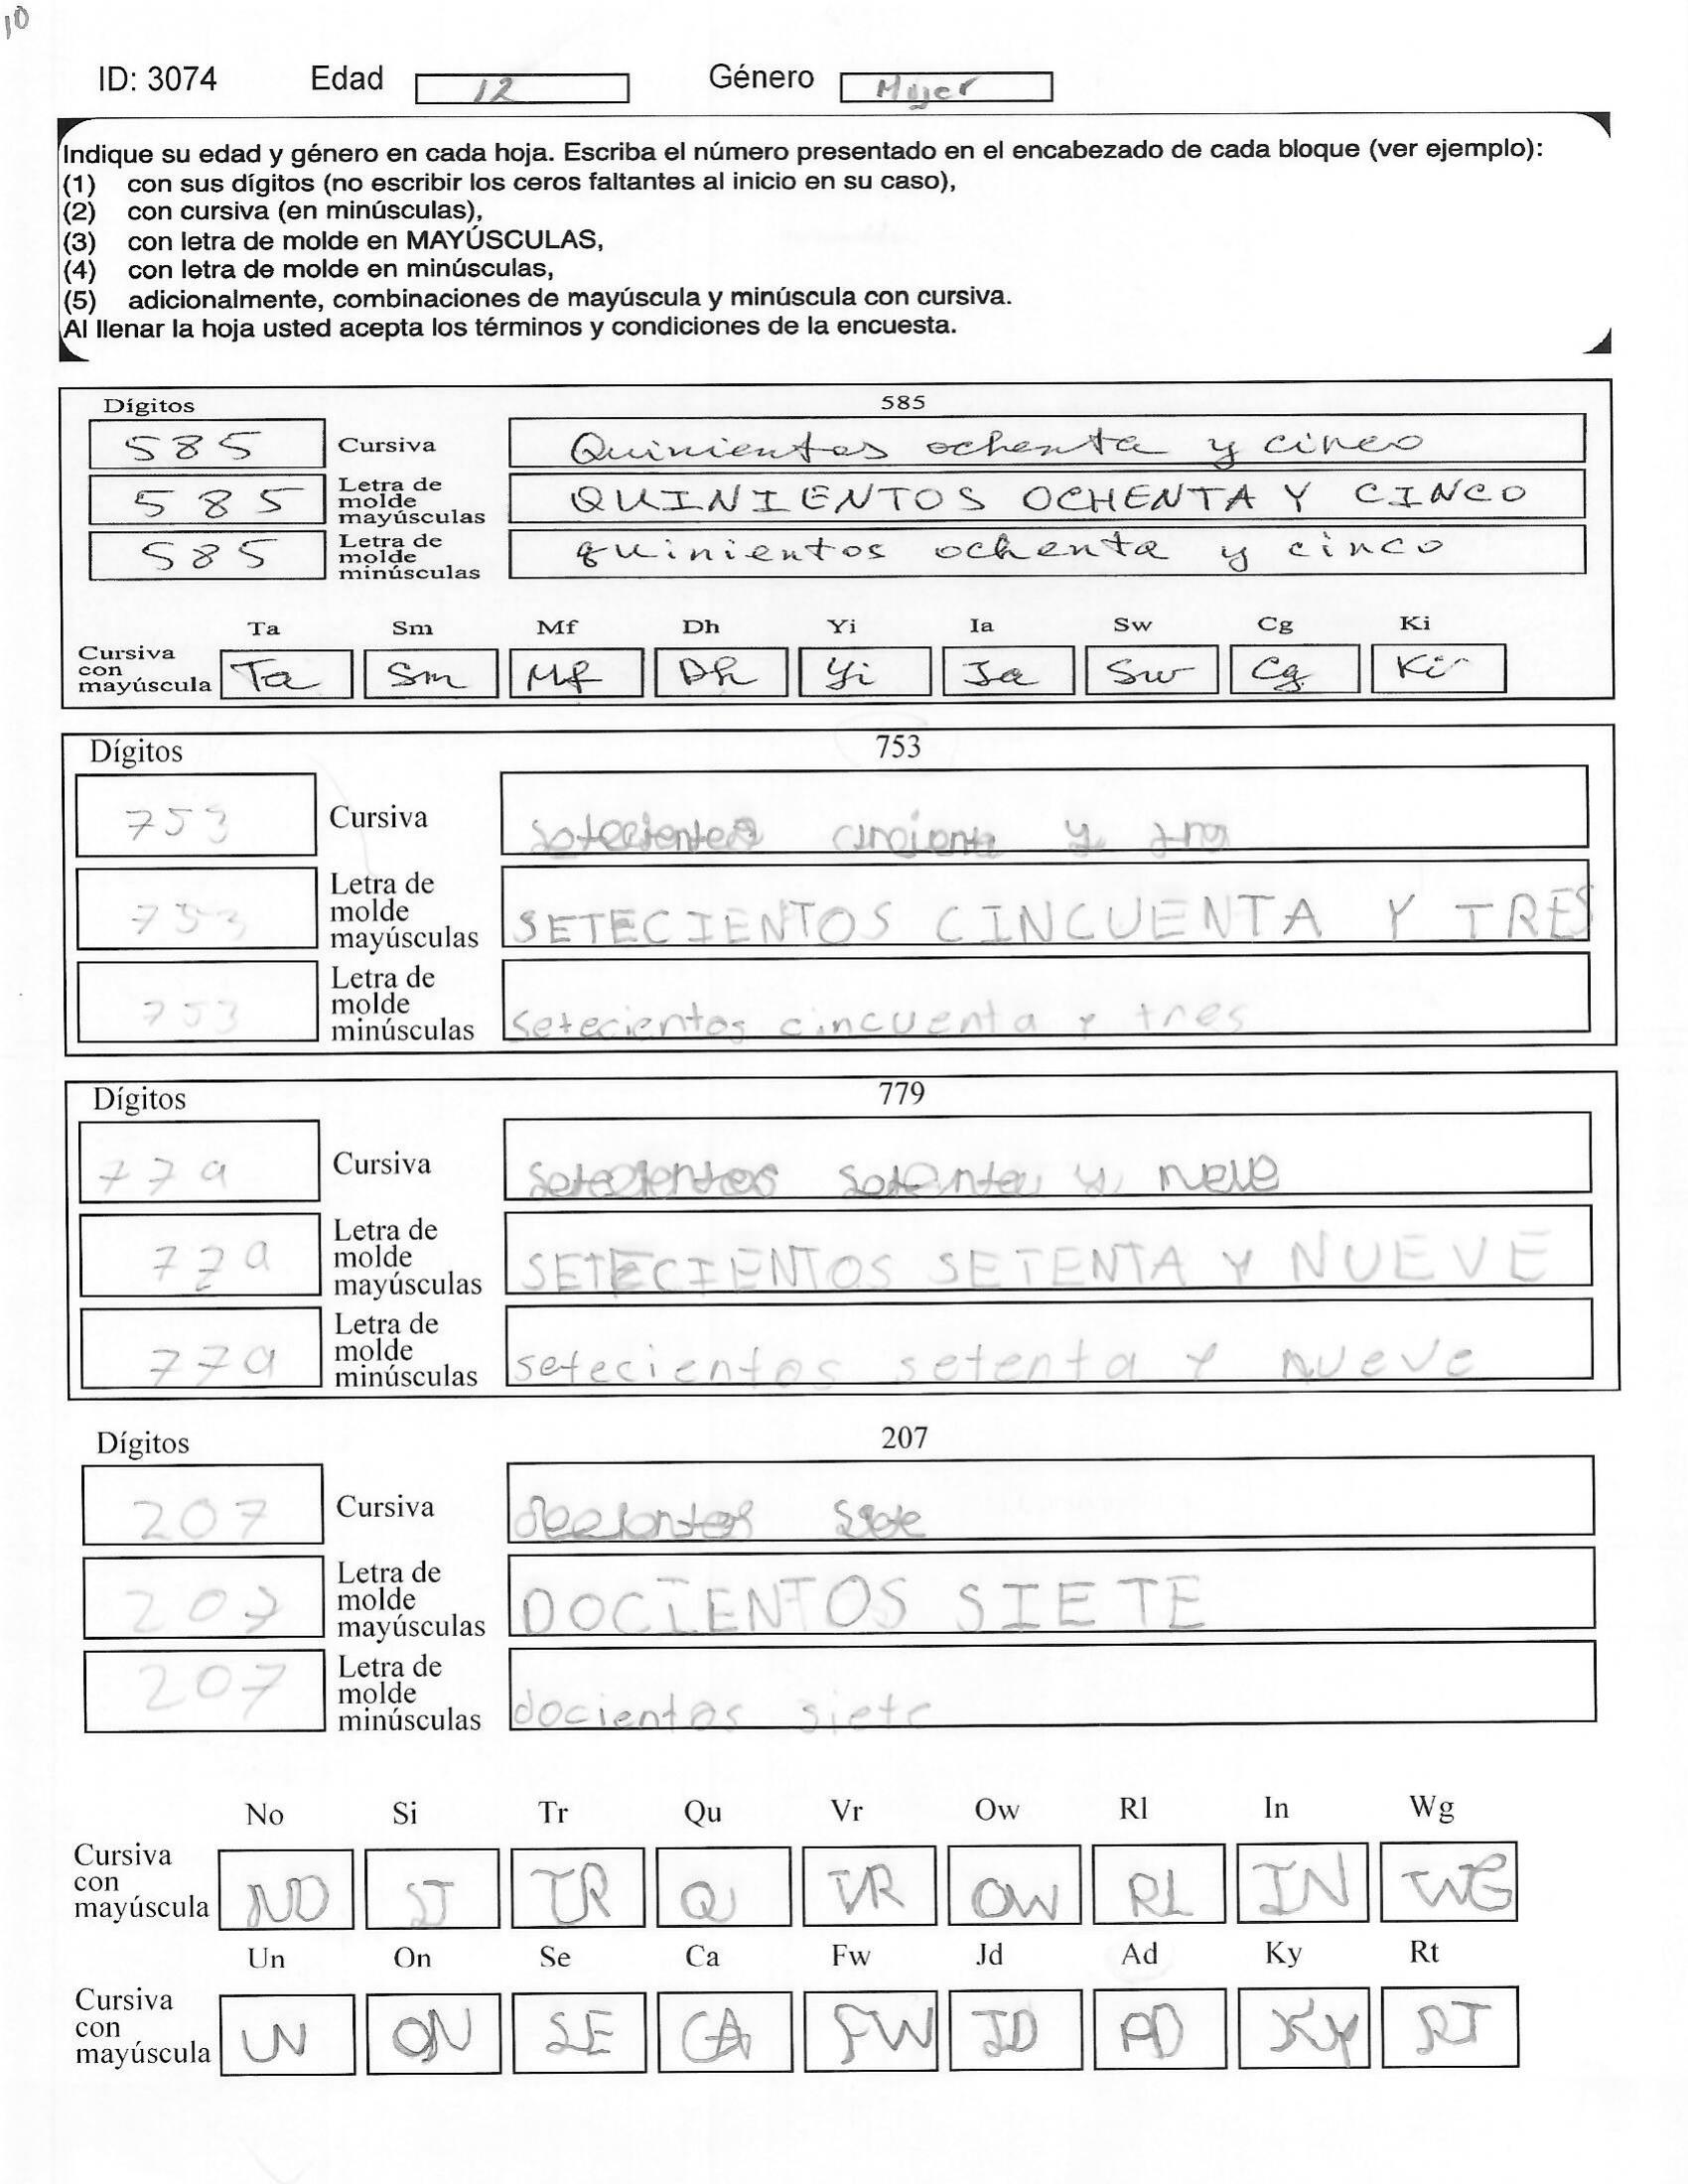 10
ID: 3074 Edad 12 Género Mujer
Indique su edad y género en cada hoja. Escriba el número presentado en el encabezado de cada bloque (ver ejemplo):
(1) con sus dígitos (no escribir los ceros faltantes al inicio en su caso),
(2) con cursiva (en minúsculas),
(3) con letra de molde en MAYÚSCULAS,
(4) con letra de molde en minúsculas,
(5) adicionalmente, combinaciones de mayúscula y minúscula con cursiva.
Al llenar la hoja usted acepta los términos y condiciones de la encuesta.
Dígitos 585
585 Cursiva Quinientos ochenta y cinco
585 Letra de molde mayúsculas QUINIENTOS OCHENTA Y CINCO
585 Letra de molde minúsculas quinientos ochenta y cinco
Ta Sm Mf Dh Yi Ia Sw Cg Ki
Cursiva con mayúscula Ta Sm Mf Dh Yi Ia Sw Cg Ki
Dígitos 753
753 Cursiva y
753 Letra de molde mayúsculas SETECIENTOS CINCUENTA Y TRES
753 Letra de molde minúsculas setecientos cincuenta y tres
Dígitos 779
779 Cursiva setecientos setenta y
779 Letra de molde mayúsculas SETECIENTOS SETENTA Y NUEVE
779 Letra de molde minúsculas setecientos setenta y nueve
Dígitos 207
207 Cursiva siete
207 Letra de molde mayúsculas DOCIENTOS SIETE
207 Letra de molde minúsculas docientos siete
No Si Tr Qu Vr Ow Rl In Wg
Cursiva con mayúscula NO SI TR VR OW RL IN WG
Un On Se Ca Fw Jd Ad Ky Rt
Cursiva con mayúscula UN ON SE CA FW JD AD KY RT